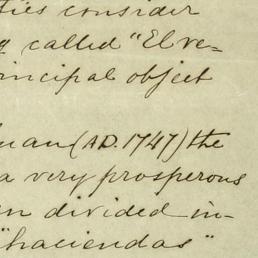 ties consider
g called "Elve-
rincipal object
uan (A.D. 1747) the
a very prosperous
en divided in-
"haciendas"